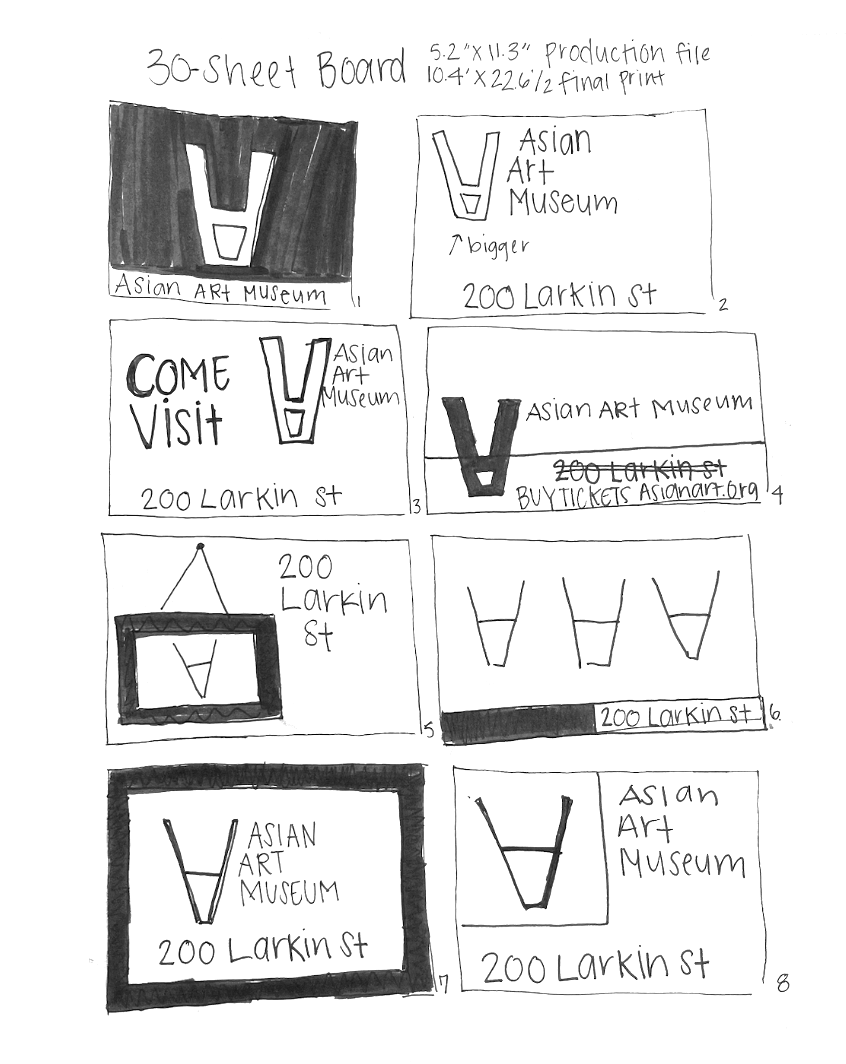 30-Sheet Board
5.2"X11.3" Production file
10.4'X22.6'/2 final print
Asian Art Museum
1
Asian
Art
Museum
↑bigger
200 Larkin St
2
COME
Visit
Asian
Art
Museum
200 Larkin St
3
Asian Art Museum
200 Larkin St
BUY TICKETS Asianart.org
4
200
Larkin
St
5
200 Larkin St
6
ASIAN
ART
MUSEUM
200 Larkin St
7
Asian
Art
Museum
200 Larkin St
8